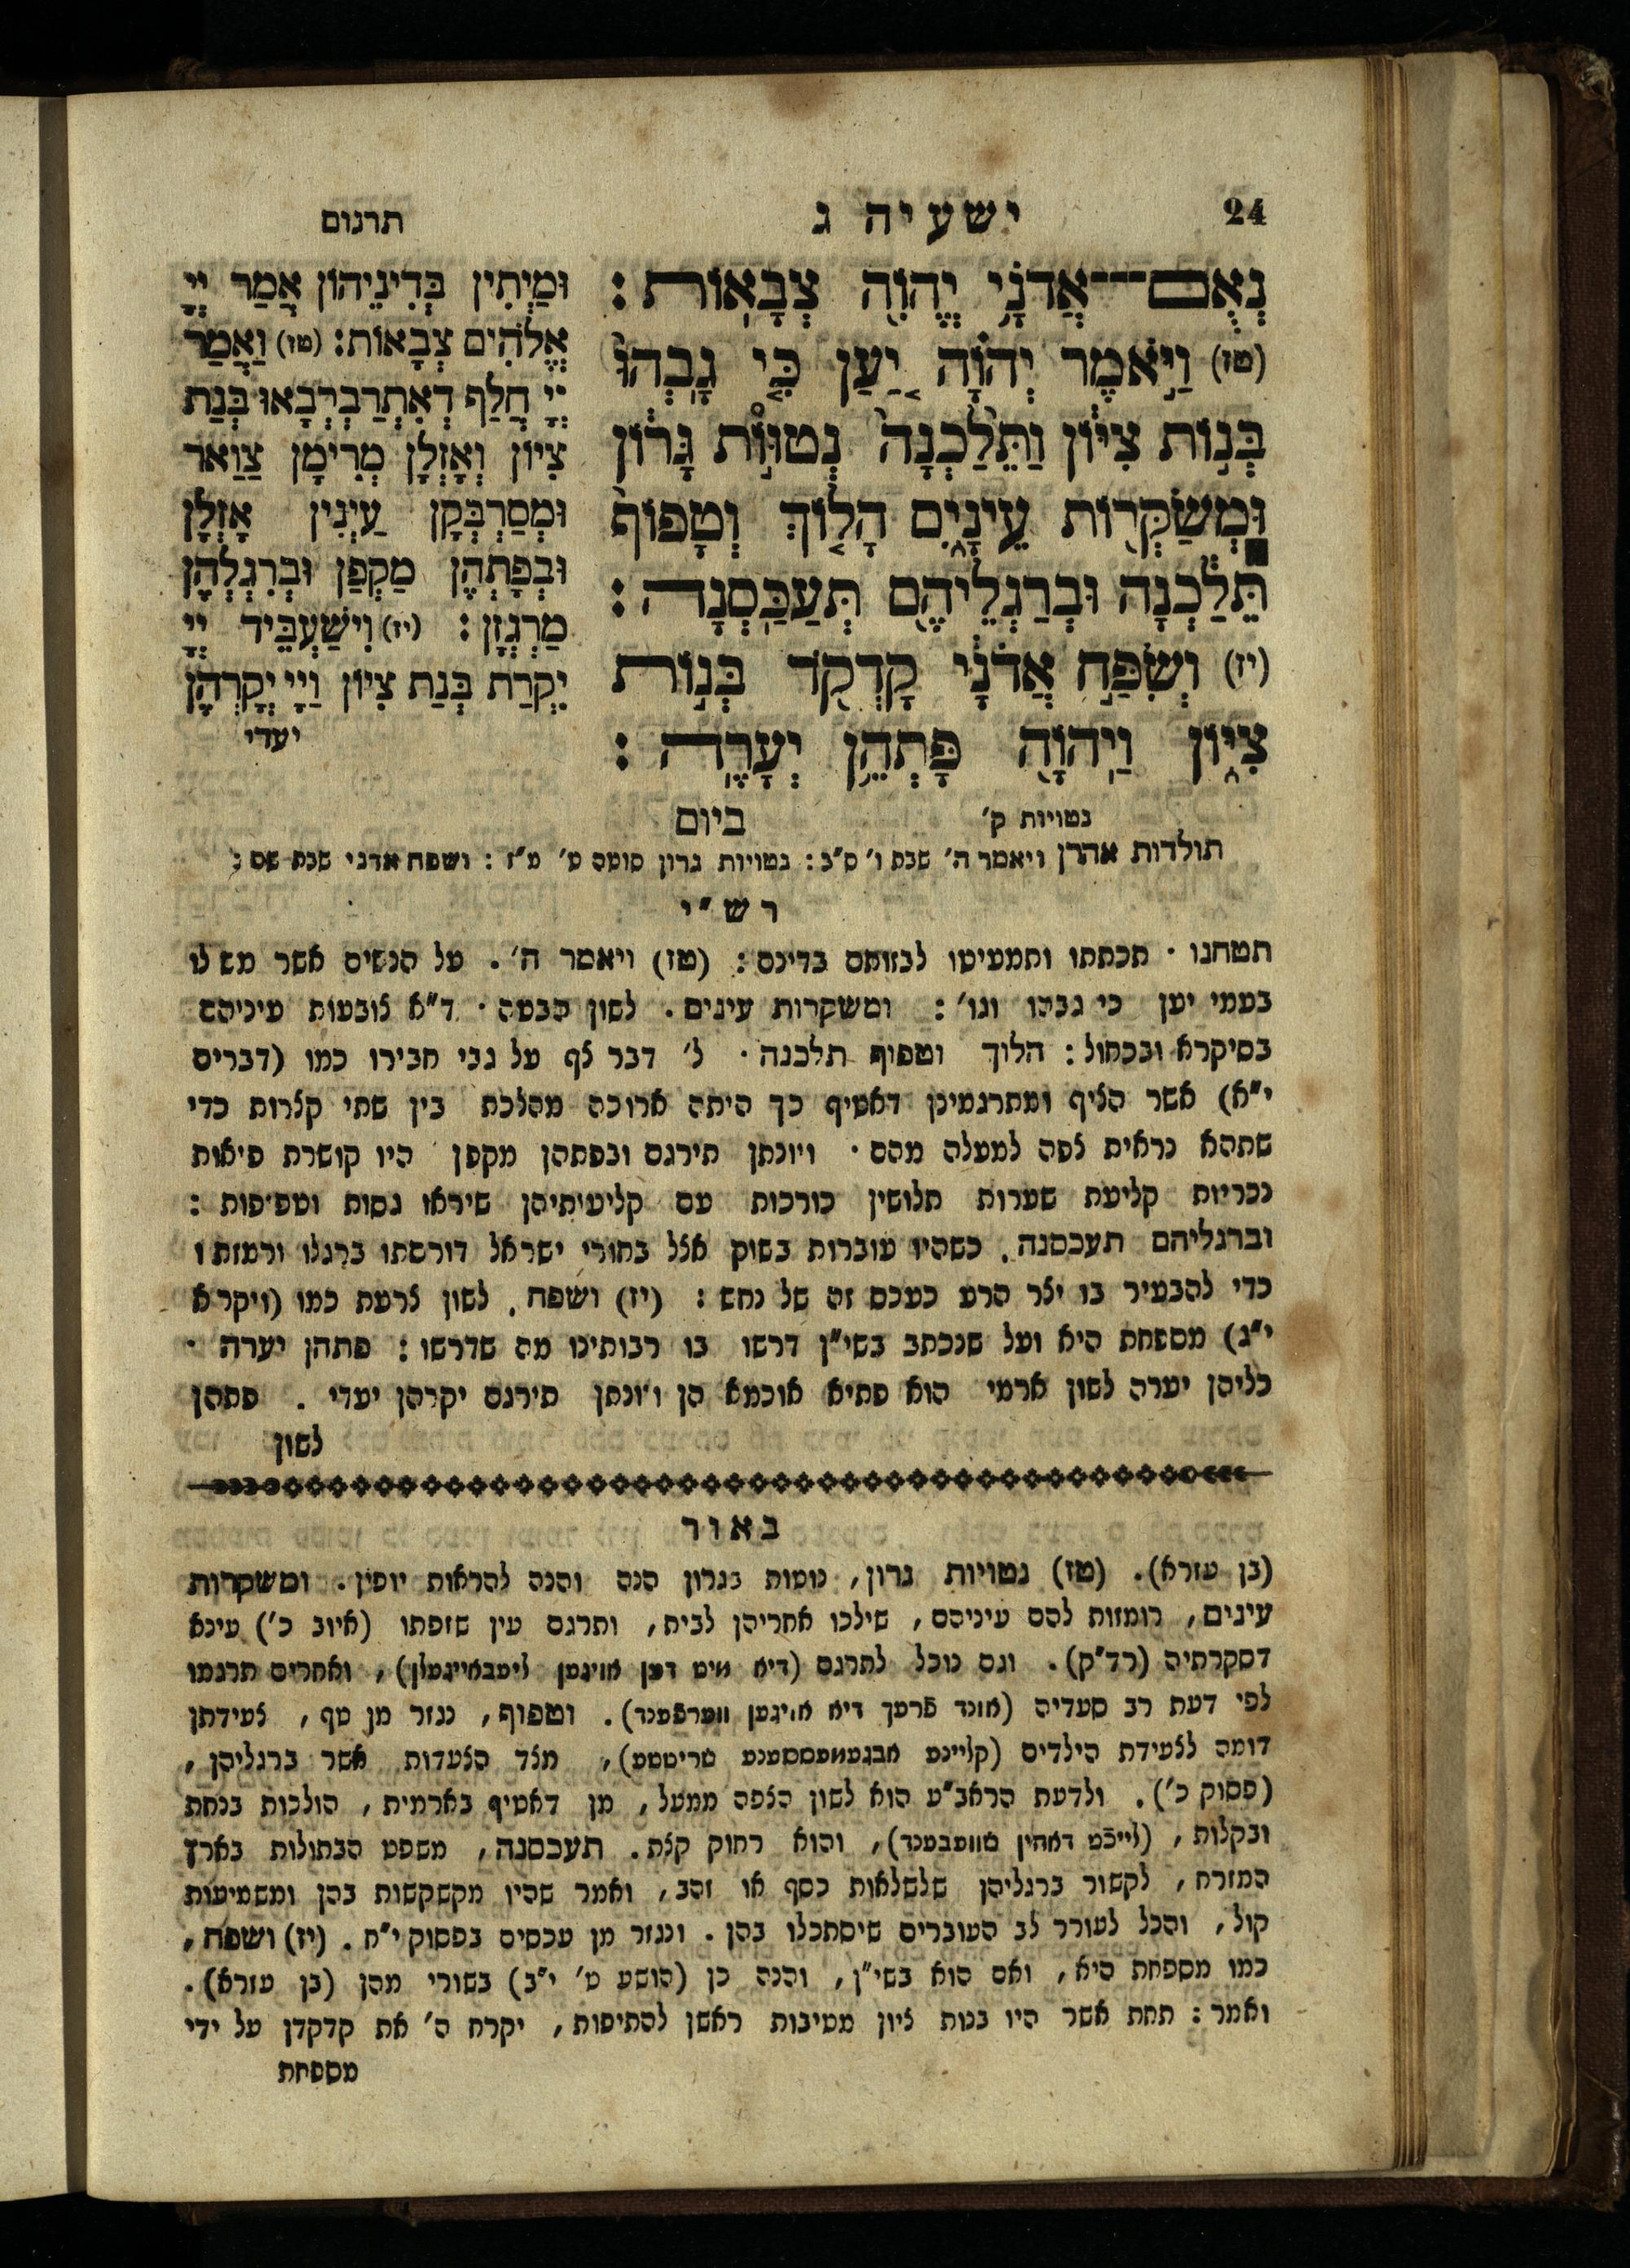 24
ישעיה ג
תרגום
נְאֻם־אֲדֹנָי יֱהֹוִה צְבָאוֹת:
(טז) וַיֹּאמֶר יְהוָֹה יַעַן כִּי גָבְהוּ
בְּנוֹת צִיּוֹן וַתֵּלַכְנָה נְטוּוֹת גָּרוֹן
וּמְשַׂקְּרוֹת עֵינָיִם הָלוֹךְ וְטָפוֹף
תֵּלַכְנָה וּבְרַגְלֵיהֶם תְּעַכַּסְנָה:
(יז) וְשִׂפַּח אֲדֹנָי קָדְקֹד בְּנוֹת
צִיּוֹן וַיהוָֹה פָּתְהֵן יְעָרֶה:
נטויות ק׳
ביום
וּמַיְתִין בְּדִינֵיהוֹן אֲמַר יְיָ
אֱלֹהִים צְבָאוֹת: (טז) וַאֲמַר
יְיָ חֲלַף דְאִתְרַבְרְבָאוּ בְּנַת
צִיוֹן וְאָזְלָן מְרִימָן צַוַאר
וּמְסַרְבְּקָן עַיְנִין אָזְלָן
וּבְפָתְהֶן מַקְפַן וּבְרִגְלְהֶן
מַרְגְזָן: (יז) וִישַׁעְבֵּיד יְיָ
יַקְרַת בְּנַת צִיוֹן וַיְיָ יְקָרְהֶן
יעדי
תולדות אהרן ויאמר ה׳ שבת ו׳ ס״ב: נטויות גרון סוטה ט׳ מ״ז: ושפח אדני שבת שם:
רש״י
תטחנו · תכתתו ותמעיטו לבזותם בדינם: (טז) ויאמר ה׳. על הנשים אשר משלו
בעמי יען כי גבהו וגו׳: ומשקרות עינים. לשון הבטה · ד״א צובעות עיניהם
בסיקרא ובכחול: הלוך וטפוף תלכנה · ל׳ דבר צף על גבי חבירו כמו (דברים
י״א) אשר הציף ומתרגמינן דאטיף כך היתה ארוכה מהלכת בין שתי קצרות כדי
שתהא נראית צפה למעלה מהם · ויונתן תירגם ובפתהן מקפן היו קושרת פיאות
נכריות קליעת שערות תלושין כורכות עם קליעותיהן שיראו גסות וטפופות:
וברגליהם תעכסנה. כשהיו עוברות בשוק אצל בחורי ישראל דורסתו ברגלו ורמזתו
כדי להבעיר בו יצר הרע כעכס זה של נחש: (יז) ושפח. לשון צרעת כמו (ויקרא
י״ג) מספחת היא ועל שנכתב בשי״ן דרשו בו רבותינו מה שדרשו: פתהן יערה ·
כליהן יערה לשון ארמי הוא פתיא אוכמא הן ויונתן תירגם יקרהן יעדי. פתהן
לשון
באור
(בן עזרא). (טז) נטויות גרון, נוטות בגרון הנה והנה להראות יופין. ומשקרות
עינים, רומזות להם עיניהם, שילכו אחריהן לבית, ותרגם עין שזפתו (איוב כ׳) עינא
דסקרתיה (רד״ק). וגם נוכל לתרגם (דיא מיט דען אויגען ליעבאייגעלן), ואחרים תרגמו
לפי דעת רב סעדיה (אונד פרעך דיא אויגען ווערפענד). וטפוף, נגזר מן טף, צעידתן
דומה לצעידת הילדים (קליינע אבגעמעססענע טריטטע), מצד הצעדות אשר ברגליהן,
(פסוק כ׳). ולדעת הראב״ע הוא לשון הצפה ממעל, מן דאטיף בארמית, הולכות בנחת
ובקלות, (לייכט דאהין שוועבענד), והוא רחוק קצת. תעכסנה, משפט הבתולות בארץ
המזרח, לקשור ברגליהן שלשלאות כסף או זהב, ואמר שהיו מקשקשות בהן ומשמיעות
קול, והכל לעורר לב העוברים שיסתכלו בהן. ונגזר מן עכסים בפסוק י״ח. (יז) ושפח,
כמו מספחת היא, ואם הוא בשי״ן, והנה כן (הושע ט׳ י״ב) בשורי מהן (בן עזרא).
ואמר: תחת אשר היו בנות ציון מטיבות ראשן להתיפות, יקרח ה׳ את קדקדן על ידי
מספחת